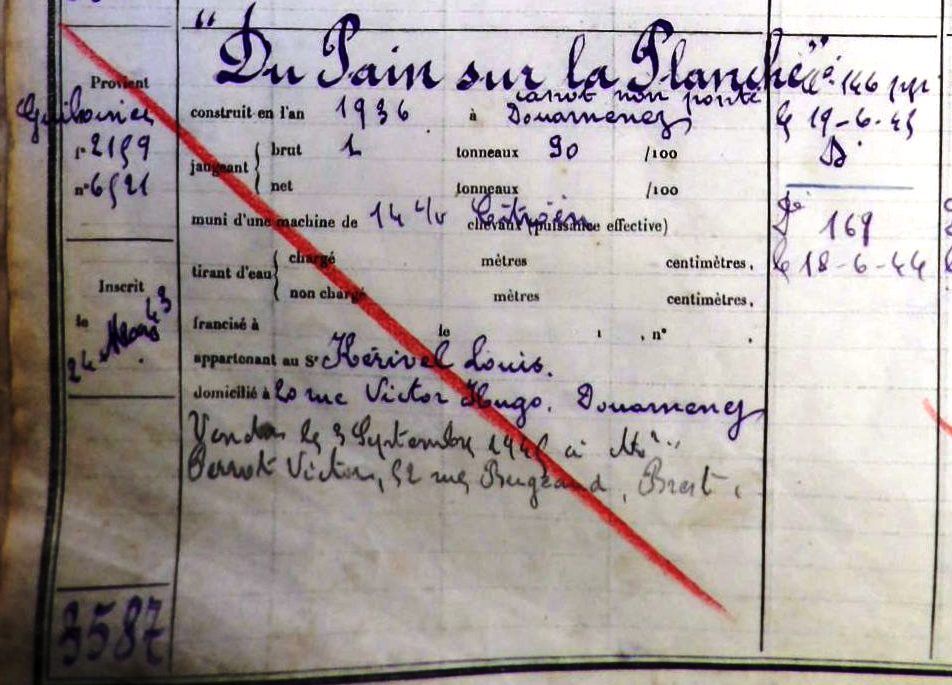 "Du Pain sur la Planche"
canot non ponté
Provient
Guilvinec
f° 2159
n° 6521
Inscrit
le 24 Mars 43
3587
construit en l'an 1936 à Douarnenez
jaugeant
brut 1 tonneaux 90 /100
net tonneaux /100
muni d'une machine de 14 c/v Citroën chevaux (puissance effective)
tirant d'eau
chargé mètres centimètres.
non chargé mètres centimètres.
francisé à le , n° .
appartenant au Sr Kérivel Louis.
domicilié à 20 rue Victor Hugo. Douarnenez
Vendu le 3 Septembre à Mr
Perrot Victor, 52 rue Bugeaud, Brest.
146
le 19-6-45
D.
169
le 18-6-44